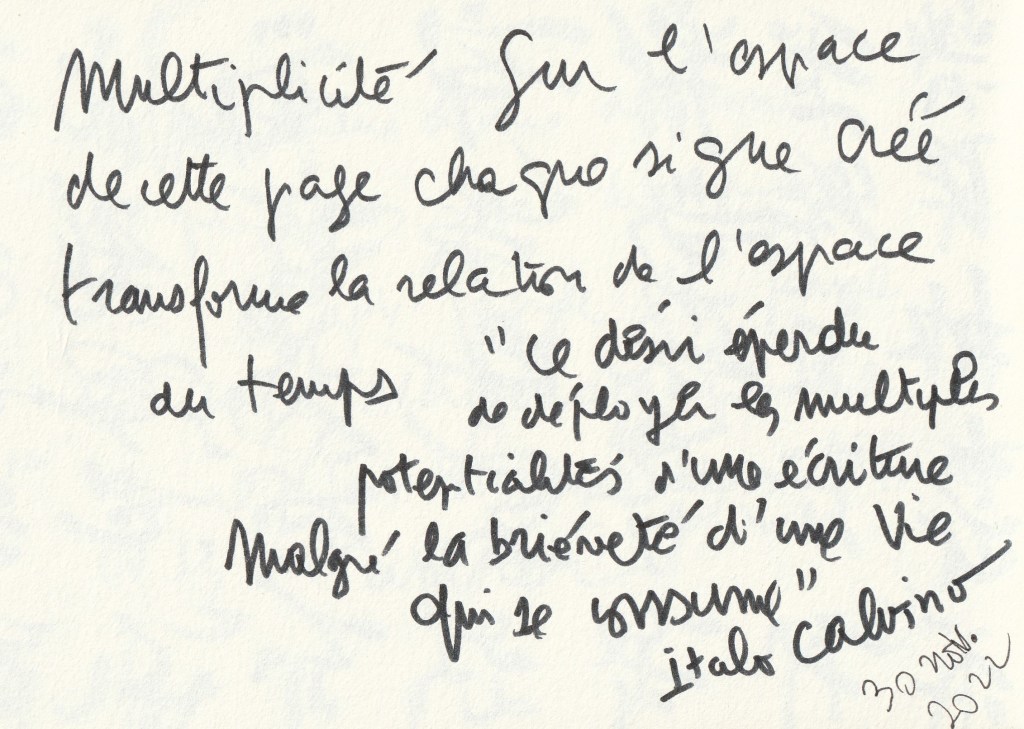 Multiplicité Sur l'espace
de cette page chaque signe créé
transforme la relation de l'espace
du temps "Ce désir éperdu
de déployer les multiples
potentialités d'une écriture
Malgré la brièveté d'une vie
qui se consume"
Italo Calvino
30 Nov.
2022